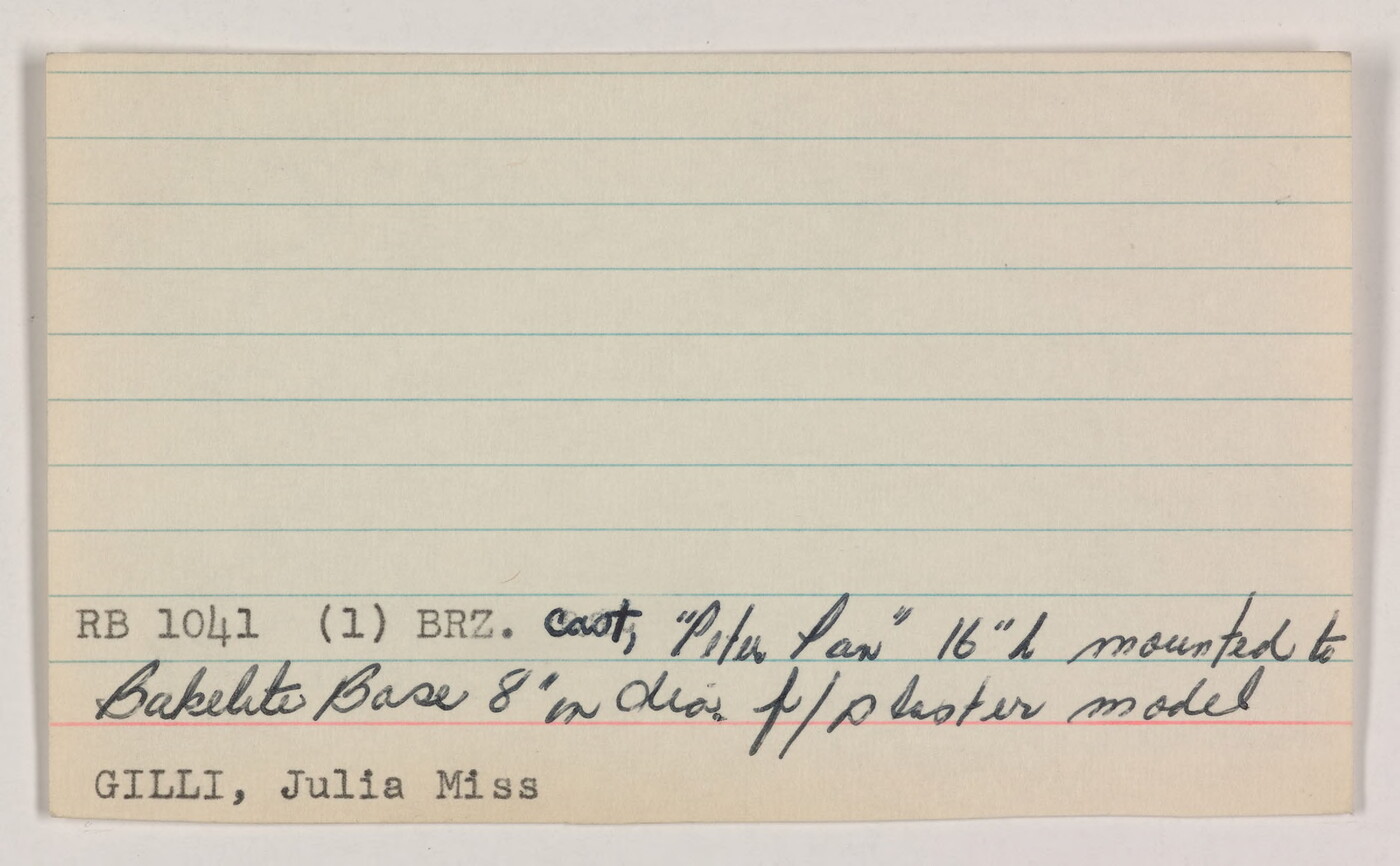 RB 1041 (1) BRZ. cast, "Peter Pan" 16" h mounted to
Bakelite Base 8" in dia. f/plaster model
GILLI, Julia Miss